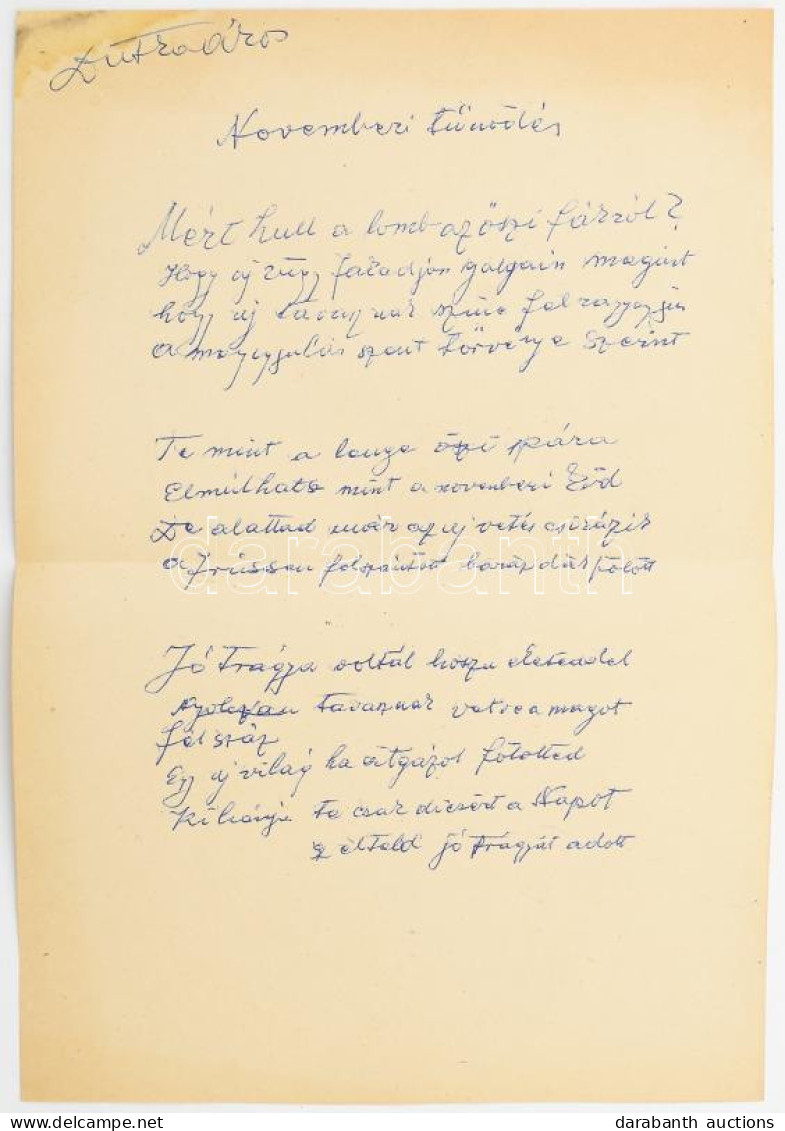 Novemberi tűnődés
Mért hull a lomb az őszi fáról?
Hogy új rügy fakadjon galyain megint
hogy új tavasznak színe felragyogjon
a megujulás szent törvénye szerint
Te mint a lenge őszi pára
Elmúlhatsz mint a novemberi Köd
De alattad már az uj vetés csirázik
a frissen felszántott barázdák fölött
Jó trágya voltál hosszu életeddel
Nyolcvan tavasznak vetve a magot
félszáz
Egy uj világ ha átgázol fölötted
te csak dicsérd a Napot
s éltold jó trágyát adott
darabanth
darabanth auctions